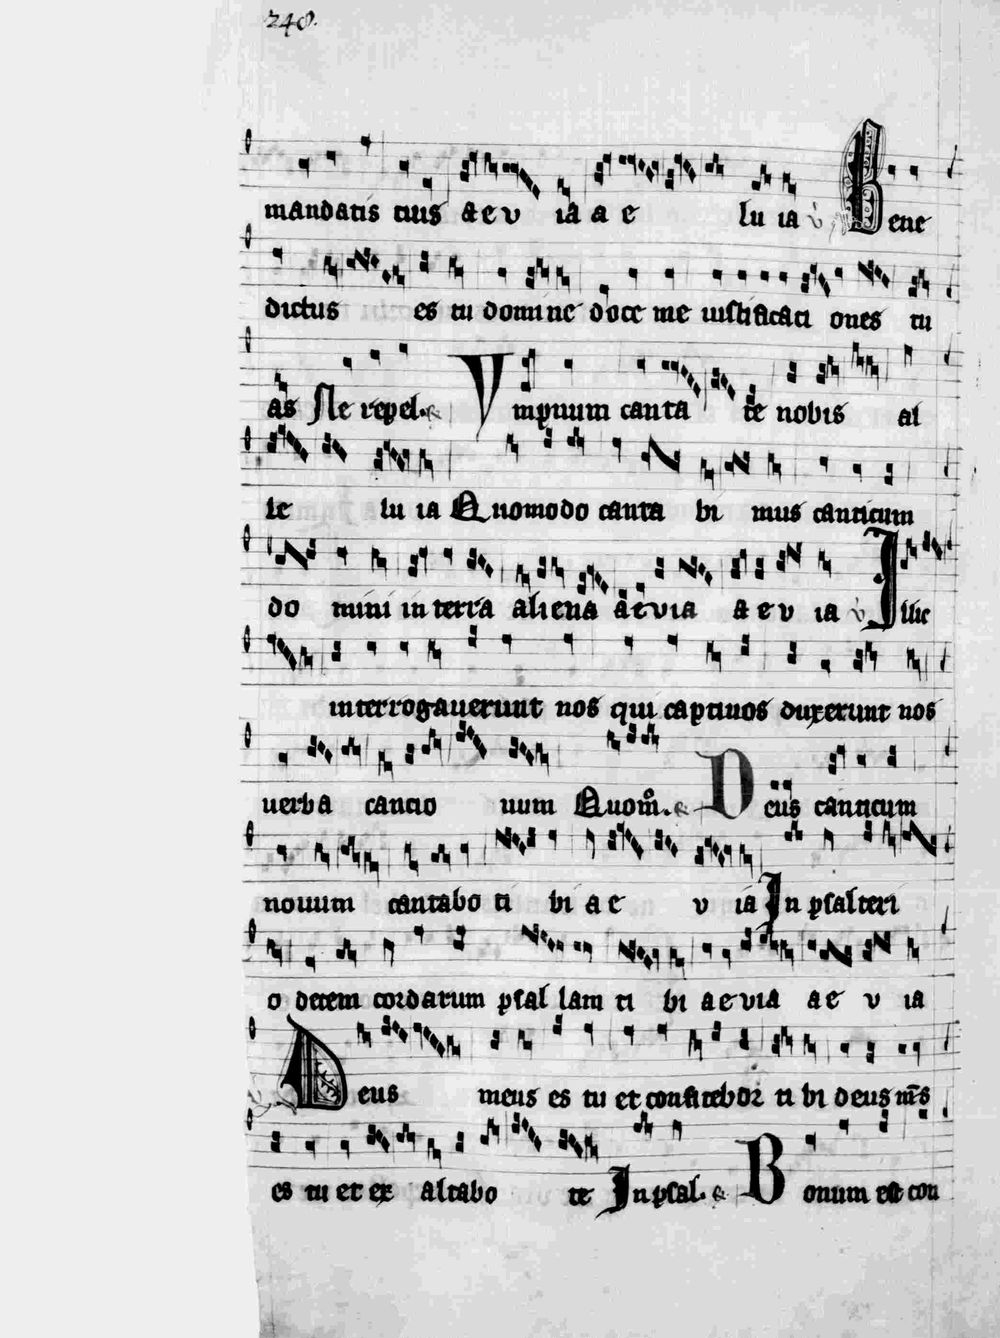 248.
mandatis tuis aev ia a e lu ia v Bene
dictus es tu domine doce me iustificati ones tu
as Ne repel. Ympnum canta te nobis al
le lu ia Quomodo canta bi mus canticum
do mini in terra aliena aevia aev ia v Illic
interrogauerunt nos qui captiuos duxerunt nos
uerba cantio num Quom. Deus canticum
nouum cantabo ti bi ae v ia In psalteri
o decem cordarum psal lam ti bi aevia ae v ia
Deus meus es tu et confitebor ti bi deus ms
es tu et ex altabo te In psal. Bonum est con